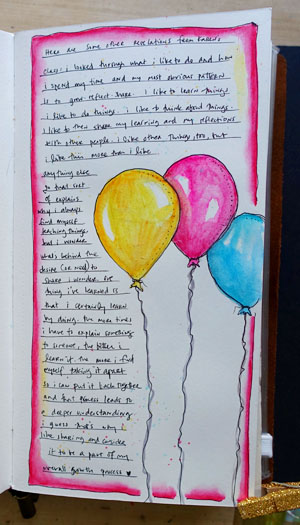 Here are some other revelations from Karen's
class: i looked through what i like to do and how
i spend my time and my most obvious pattern
is to grow reflect share. I like to learn things
i like to do things i like to think about things
i like to then share my learning and my reflections
with other people. i like other things, too, but
i like this more than i like
anything else
so that sort
of explains
why i always
find myself
teaching things
but i wonder
what's behind the
desire (or need) to
share i wonder. one
thing i've learned is
that i certainly learn
by doing the more times
i have to explain something
to someone, the better i
learn it. the more i find
myself taking it apart
so i can put it back together
and that process leads to
a deeper understanding
i guess that's why i
like sharing and consider
it to be a part of my
overall growth process ♥